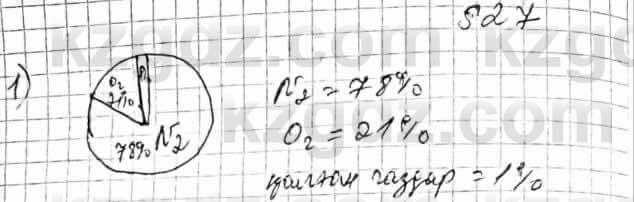 §27
1)
O₂
21%
78% N₂
N₂ = 78%
O₂ = 21%
қалған газдар = 1%
kzgdz.com